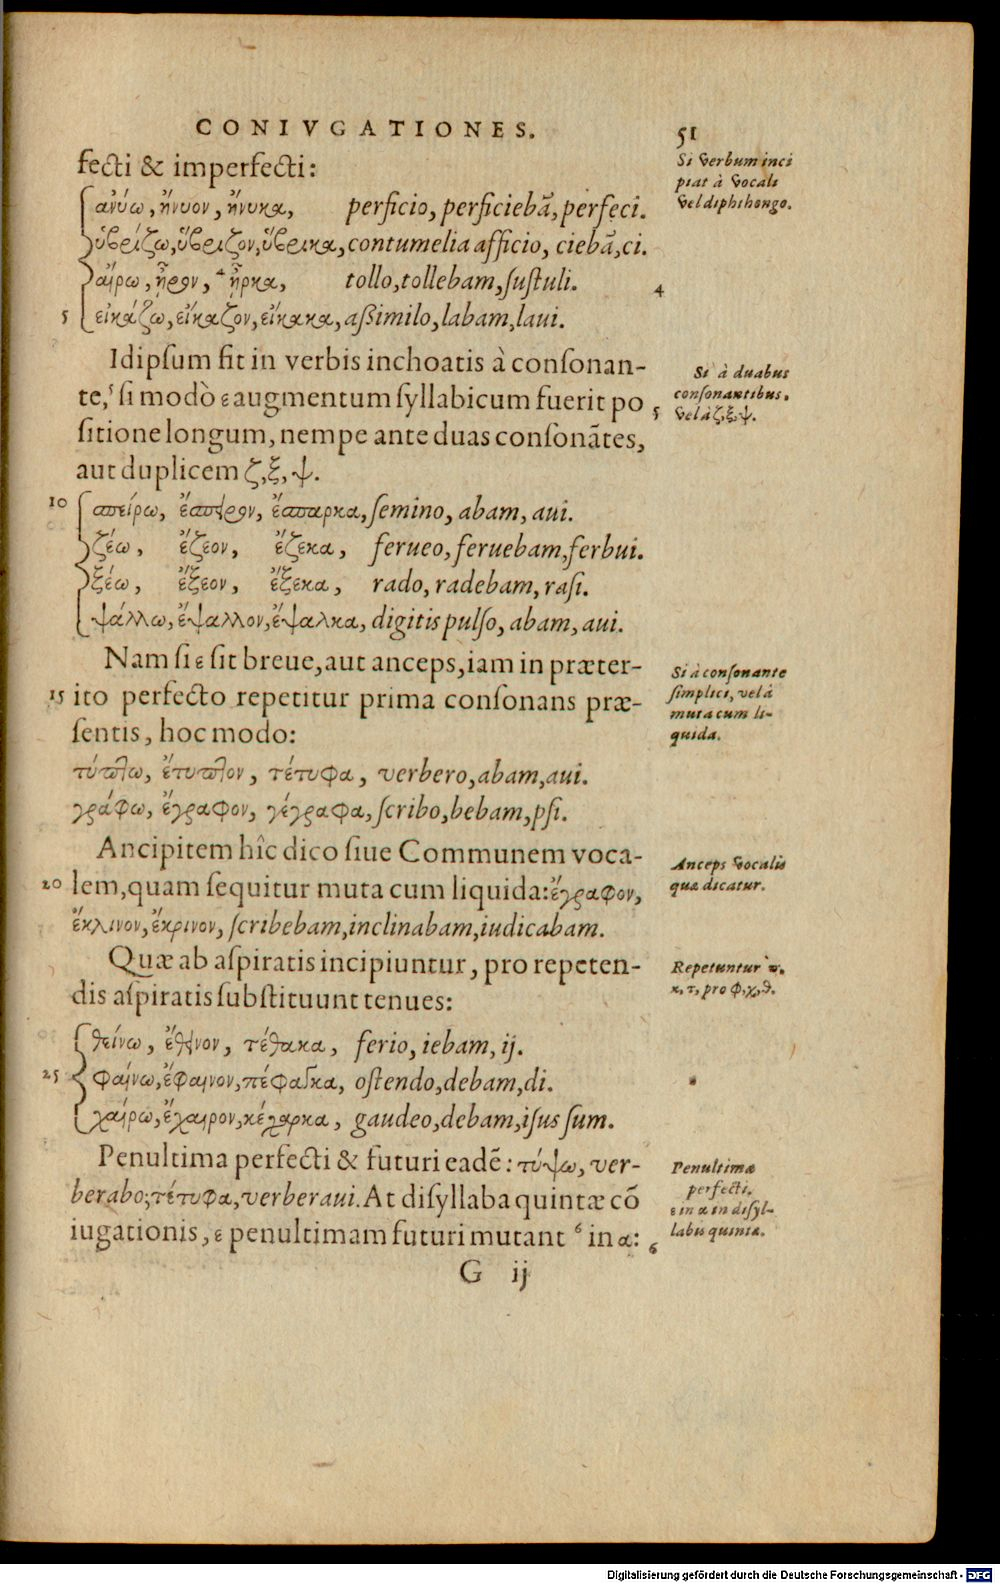 CONIVGATIONES. 51
fecti & imperfecti:
Si verbum inci
piat à vocali
vel diphthongo.
ἀνύω, ἤνυον, ἤνυκα, perficio, perficiebā, perfeci.
ὑβρίζω, ὕβριζον, ὕβρικα, contumelia afficio, ciebā, ci.
αἴρω, ᾖρον, ⁴ ᾖρκα, tollo, tollebam, ſuſtuli.
4
5 εἰκάζω, εἴκαζον, εἴκακα, aſſimilo, labam, laui.
Idipſum fit in verbis inchoatis à conſonan-
te,⁵ ſi modò ε augmentum ſyllabicum fuerit po
ſitione longum, nempe ante duas conſonātes,
aut duplicem ζ, ξ, ψ.
Si à duabus
conſonantibus,
vel à ζ, ξ, ψ.
5
10 σπείρω, ἔσπειρον, ἔσπαρκα, ſemino, abam, aui.
ζέω, ἔζεον, ἔζεκα, ferueo, feruebam, ferbui.
ξέω, ἔξεον, ἔξεκα, rado, radebam, raſi.
ψάλλω, ἔψαλλον, ἔψαλκα, digitis pulſo, abam, aui.
Nam ſi ε ſit breue, aut anceps, iam in præter-
15 ito perfecto repetitur prima conſonans præ-
ſentis, hoc modo:
Si à conſonante
ſimplici, vel à
muta cum li-
quida.
τύπτω, ἔτυπτον, τέτυφα, verbero, abam, aui.
γράφω, ἔγραφον, γέγραφα, ſcribo, bebam, pſi.
Ancipitem hîc dico ſiue Communem voca-
20 lem, quam ſequitur muta cum liquida: ἔγραφον,
ἔκλινον, ἔκρινον, ſcribebam, inclinabam, iudicabam.
Anceps vocalis
quæ dicatur.
Quæ ab aſpiratis incipiuntur, pro repeten-
dis aſpiratis ſubſtituunt tenues:
Repetuntur π,
κ, τ, pro φ, χ, θ.
θείνω, ἔθεινον, τέθακα, ferio, iebam, ij.
25 φαίνω, ἔφαινον, πέφαγκα, oſtendo, debam, di.
χαίρω, ἔχαιρον, κέχαρκα, gaudeo, debam, iſus ſum.
Penultima perfecti & futuri eadē: τύψω, ver-
berabo; τέτυφα, verberaui. At diſyllaba quintæ cō
iugationis, ε penultimam futuri mutant ⁶ in α:
Penultimæ
perfecti,
ε in α in diſyl-
labis quintæ.
6
G ij
Digitalisierung gefördert durch die Deutsche Forschungsgemeinschaft - DFG